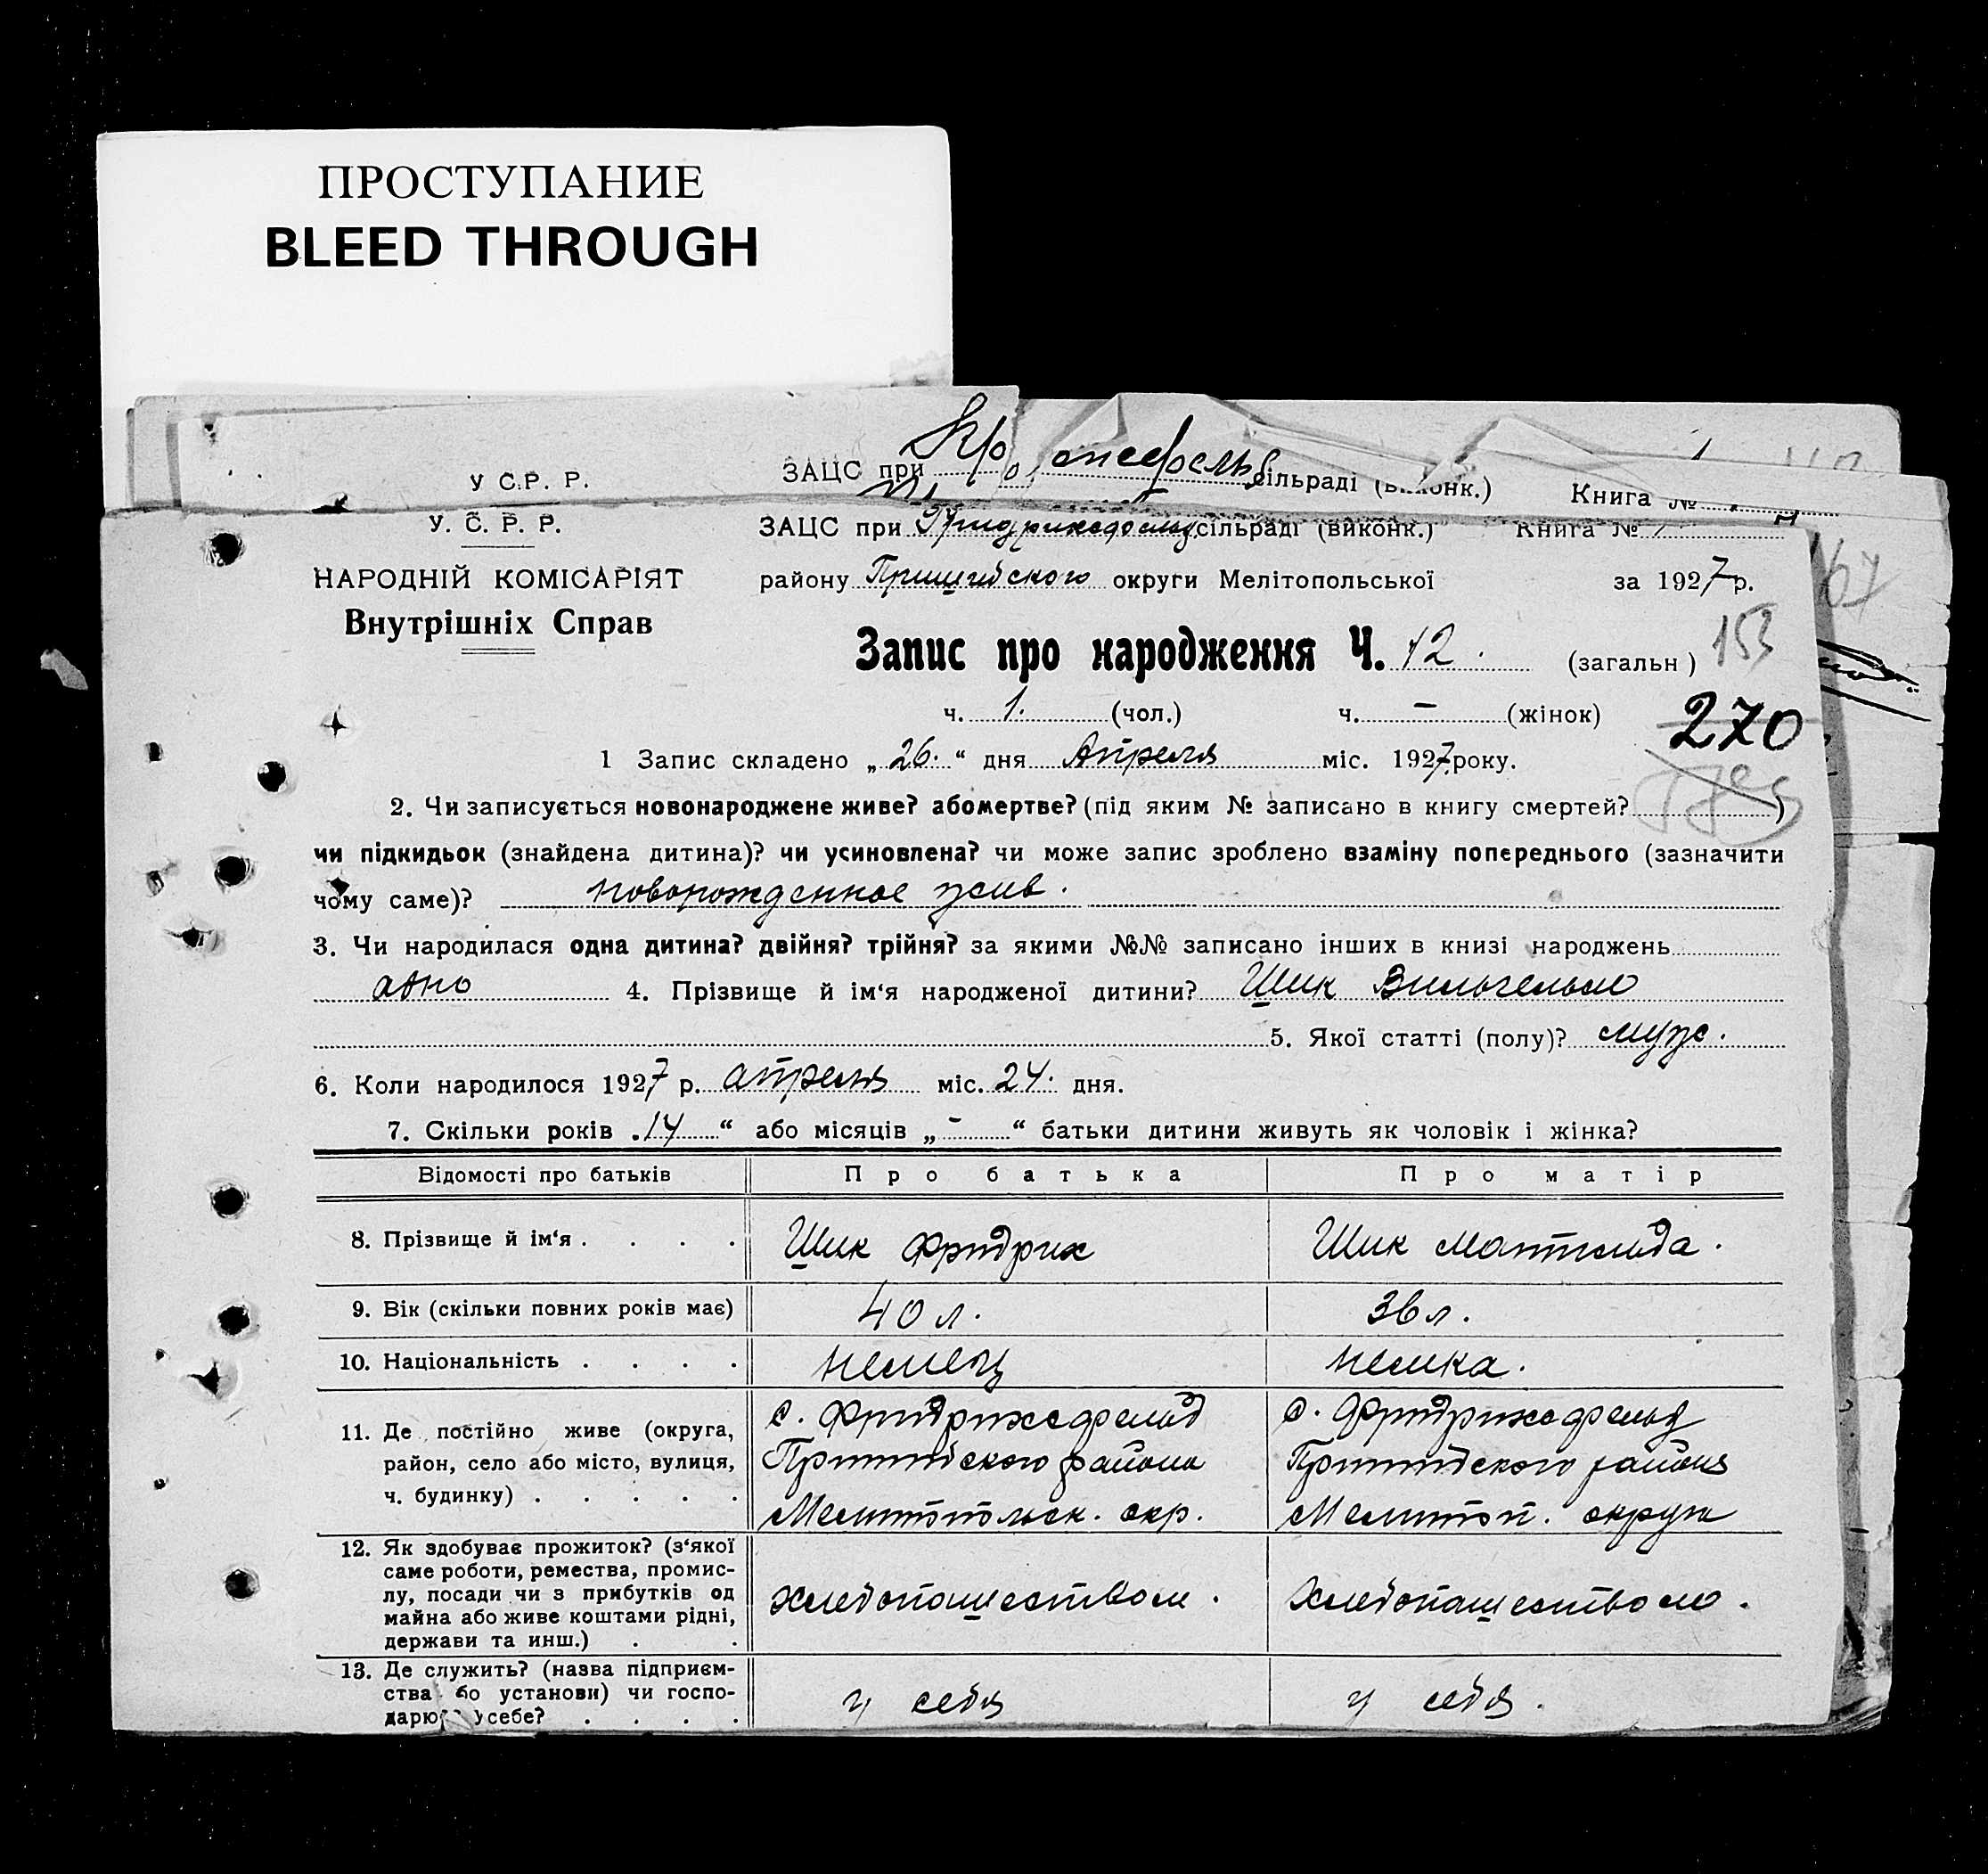 ПРОСТУПАНИЕ
BLEED THROUGH
У С.Р. Р. ЗАЦС при сільраді (виконк.) Книга №
У. С. Р. Р. ЗАЦС при Фридрихсфельд сільраді (виконк.) Книга № 1
НАРОДНІЙ КОМІСАРІЯТ району Пришибского округи Мелітопольської за 1927 р.
Внутрішніх Справ
Запис про народження Ч. 12. (загальн) 153
ч. 1. (чол.) ч. – (жінок) 270
1 Запис складено „26.“ дня Апреля міс. 1927 року.
2. Чи записується новонароджене живе? або мертве? (під яким № записано в книгу смертей? )
чи підкидьок (знайдена дитина)? чи усиновлена? чи може запис зроблено взаміну попереднього (зазначити
чому саме)? новорожденное жив.
3. Чи народилася одна дитина? двійня? трійня? за якими №№ записано інших в книзі народжень
одно 4. Прізвище й ім‘я народженої дитини? Шик Вильгельм
5. Якої статті (полу)? муж.
6. Коли народилося 1927 р. апреля міс. 24. дня.
7. Скільки років „14“ або місяців „–“ батьки дитини живуть як чоловік і жінка?
Відомості про батьків Про батька Про матір
8. Прізвище й ім‘я . . . . Шик Фридрих Шик Матильда.
9. Вік (скільки повних років має) 40 л. 36 л.
10. Національність . . . . немец немка.
11. Де постійно живе (округа, с. Фридрихсфельд с. Фридрихсфельд
район, село або місто, вулиця, Пришибского района Пришибского района
ч. будинку) . . . . . Мелитопольск. окр. Мелитоп. округи
12. Як здобуває прожиток? (з‘якої
саме роботи, ремества, промис-
лу, посади чи з прибутків од хлебопашеством. хлебопашеством.
майна або живе коштами рідні,
держави та инш.) . .
13. Де служить? (назва підприєм-
ства або установи) чи госпо- у себя у себя.
дарює у себе? . . . .